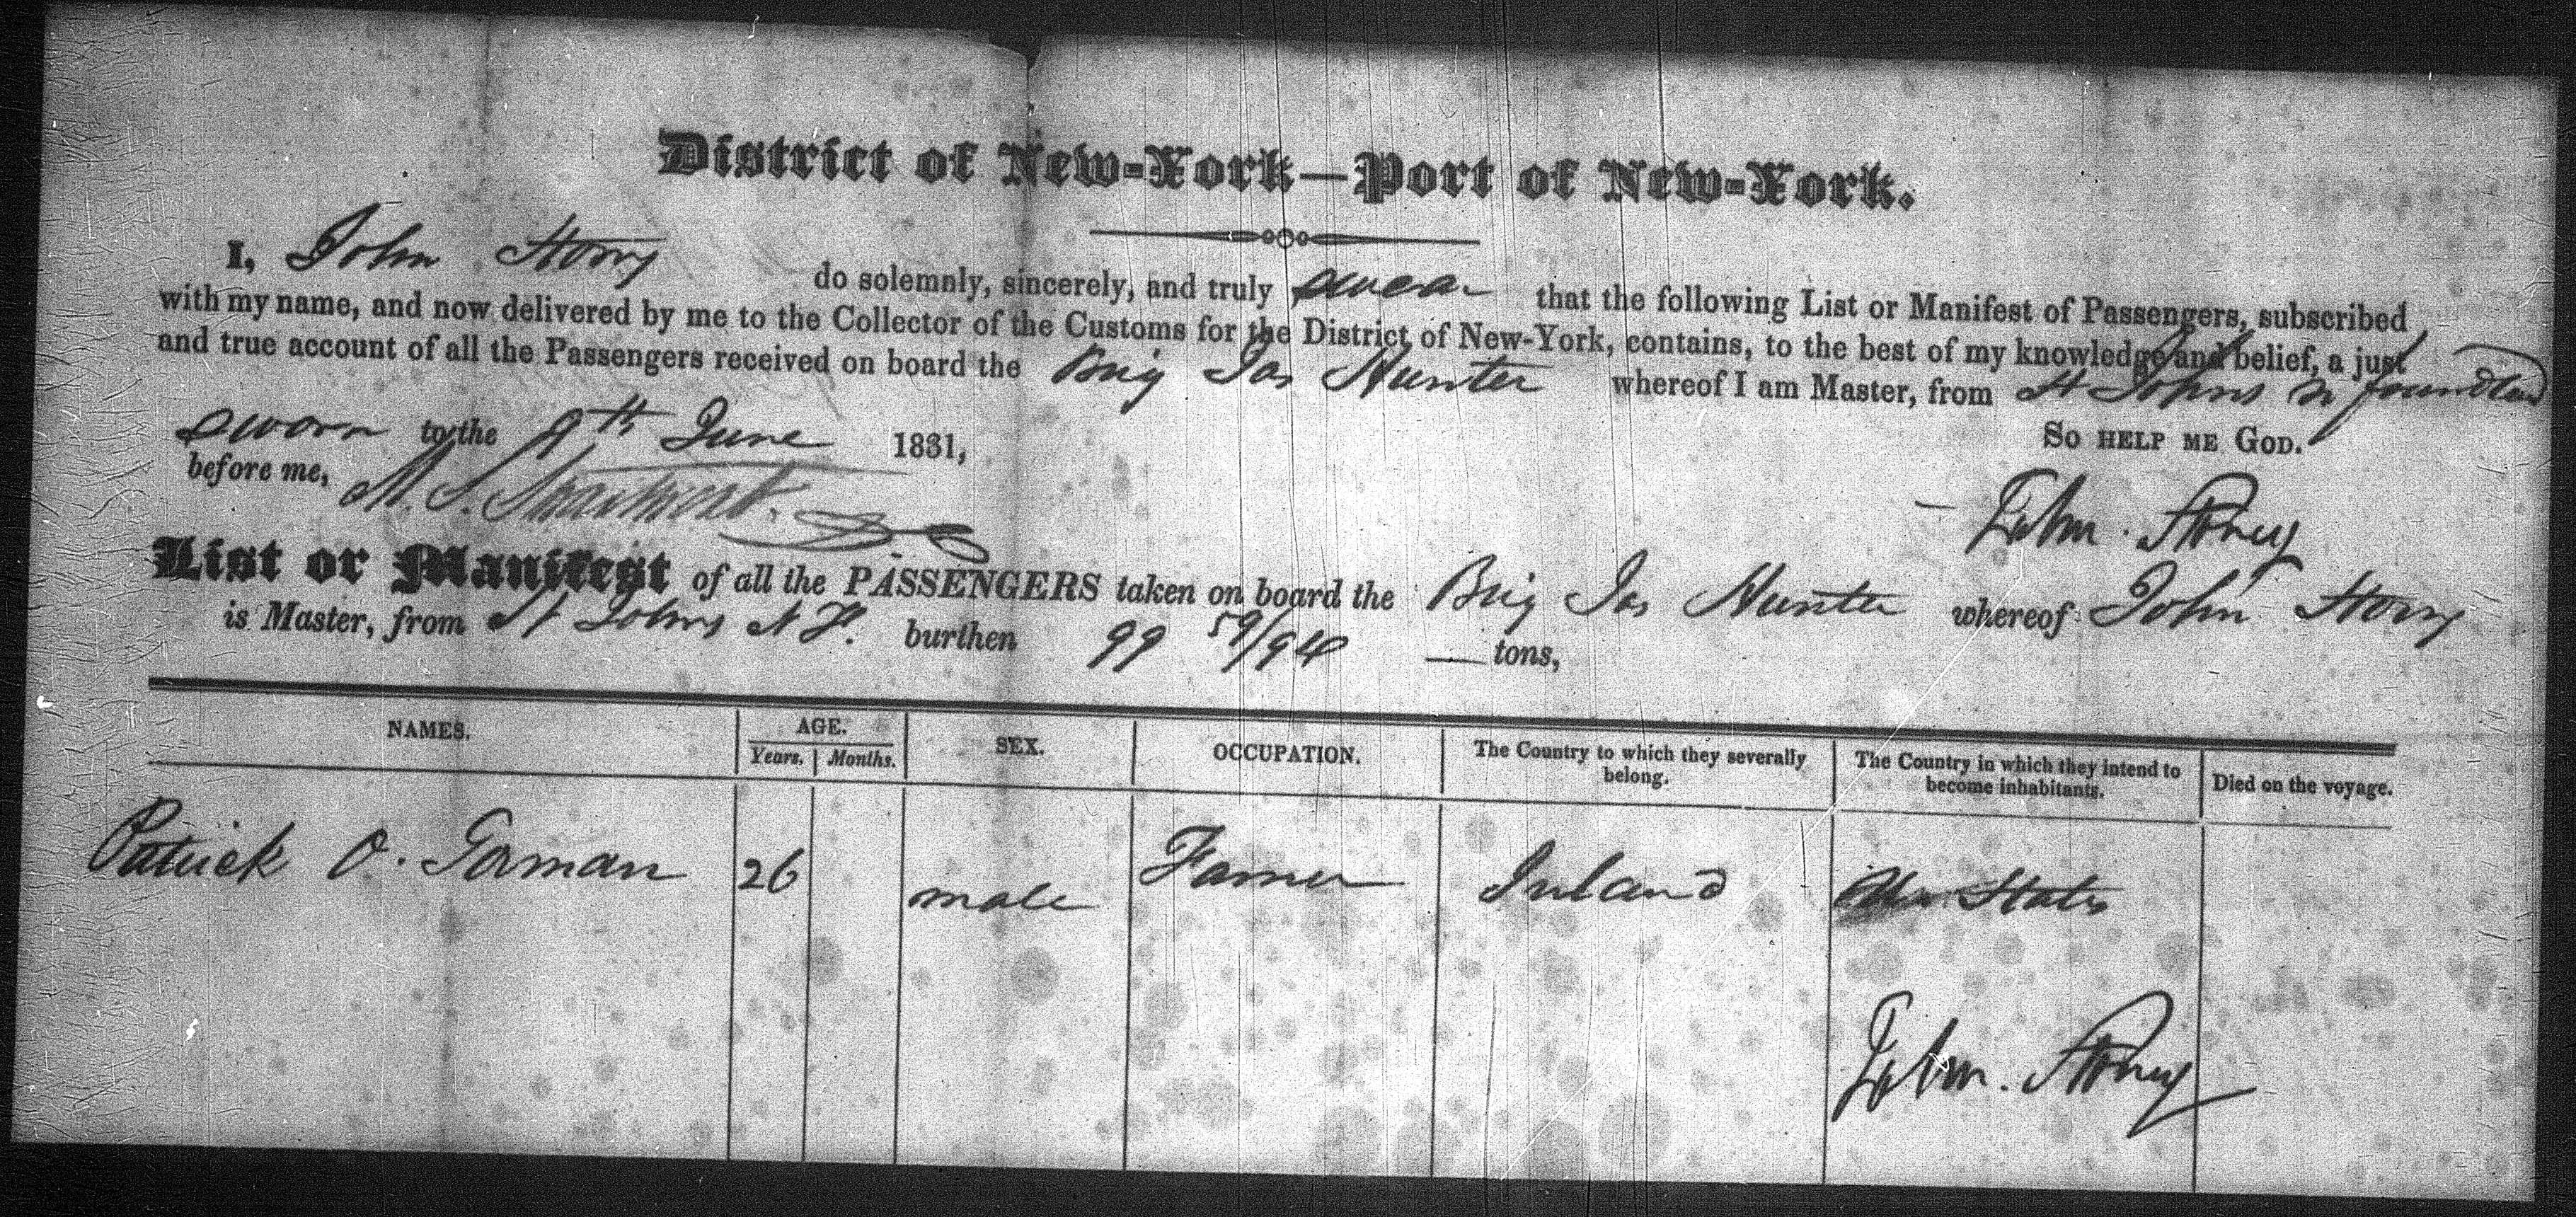 District of New-York—Port of New-York.
I, John Storey do solemnly, sincerely, and truly swear that the following List or Manifest of Passengers, subscribed
with my name, and now delivered by me to the Collector of the Customs for the District of New-York, contains, to the best of my knowledge and belief, a just
and true account of all the Passengers received on board the Brig Jas Hunter whereof I am Master, from St Johns N foundland
Sworn to the 9th June 1831,
So help me God.
before me, M. S.
John Storey
List or Manifest of all the PASSENGERS taken on board the Brig Jas Hunter whereof John Storey
is Master, from St Johns N F. burthen 99 59/94 tons,
NAMES. AGE. Years. Months. SEX. OCCUPATION. The Country to which they severally belong. The Country in which they intend to become inhabitants. Died on the voyage.
Patrick O. Gorman 26 male Farmer Ireland States
John Storey